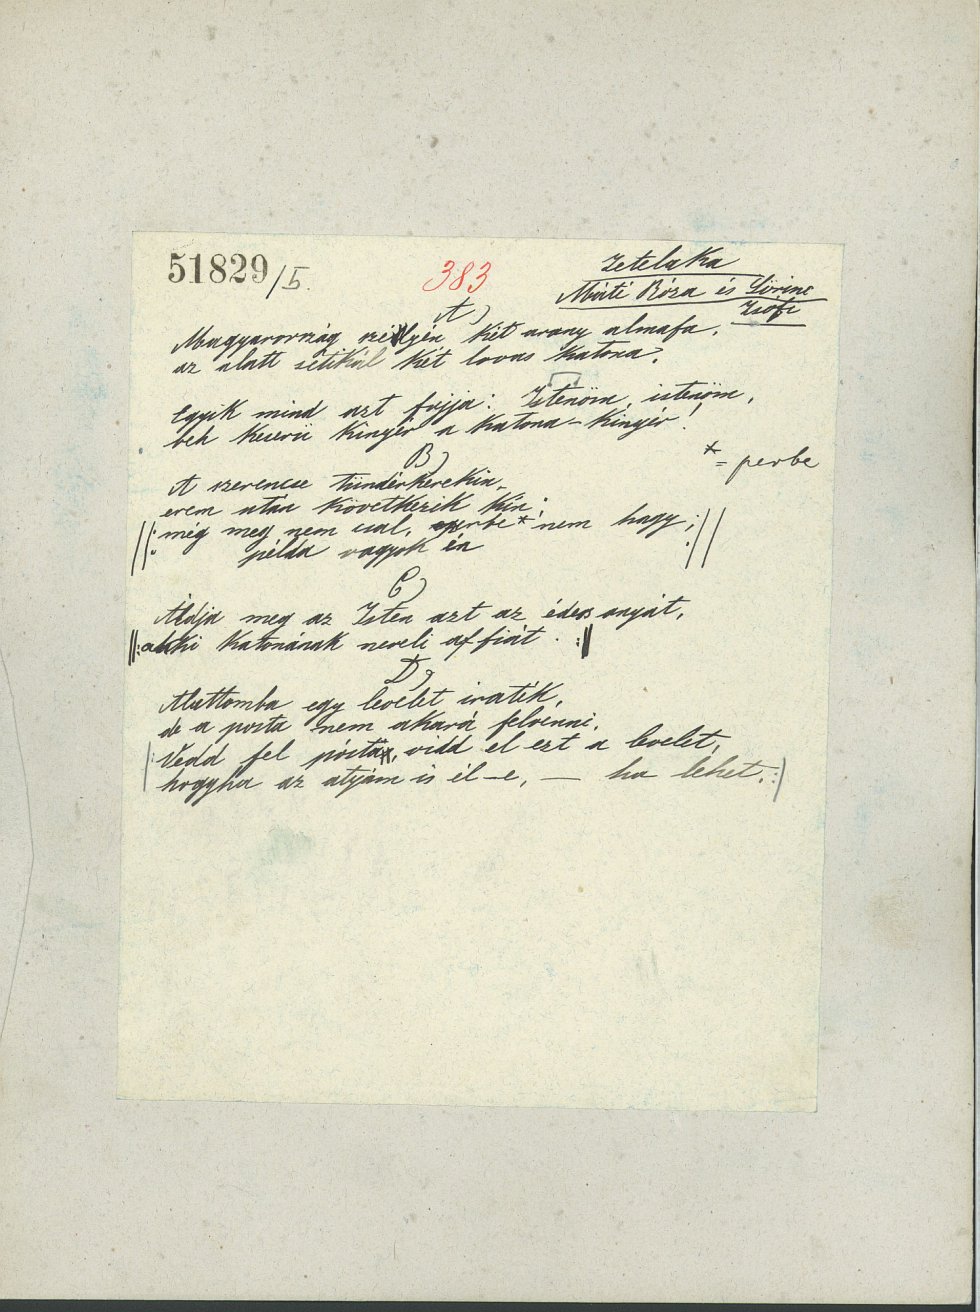 51829/5.
383
Zetelaka
Máté Róza és Lőrinc
Zsófi
A)
Magyarország szélyén két arany almafa,
az alatt sétikál két lovas katona.
Egyik mind azt fujja: Istenöm, istenöm,
beh keserü kinyér a katona-kinyér!
B)
* = perbe
A szerencse tündérkerekin,
erem után következik kín;
||: míg meg nem csal, perbe* nem hagy, :||
példa vagyok én
C)
Áldja meg az Isten azt az édes anyját,
||: akki katonának neveli af fiát. :||
D)
Aluttomba egy levelet iraték,
de a posta nem akará felvenni.
|: Vedd fel pósta, vidd el ezt a levelet,
hogyha az atyám is él-e, — ha lehet. :|